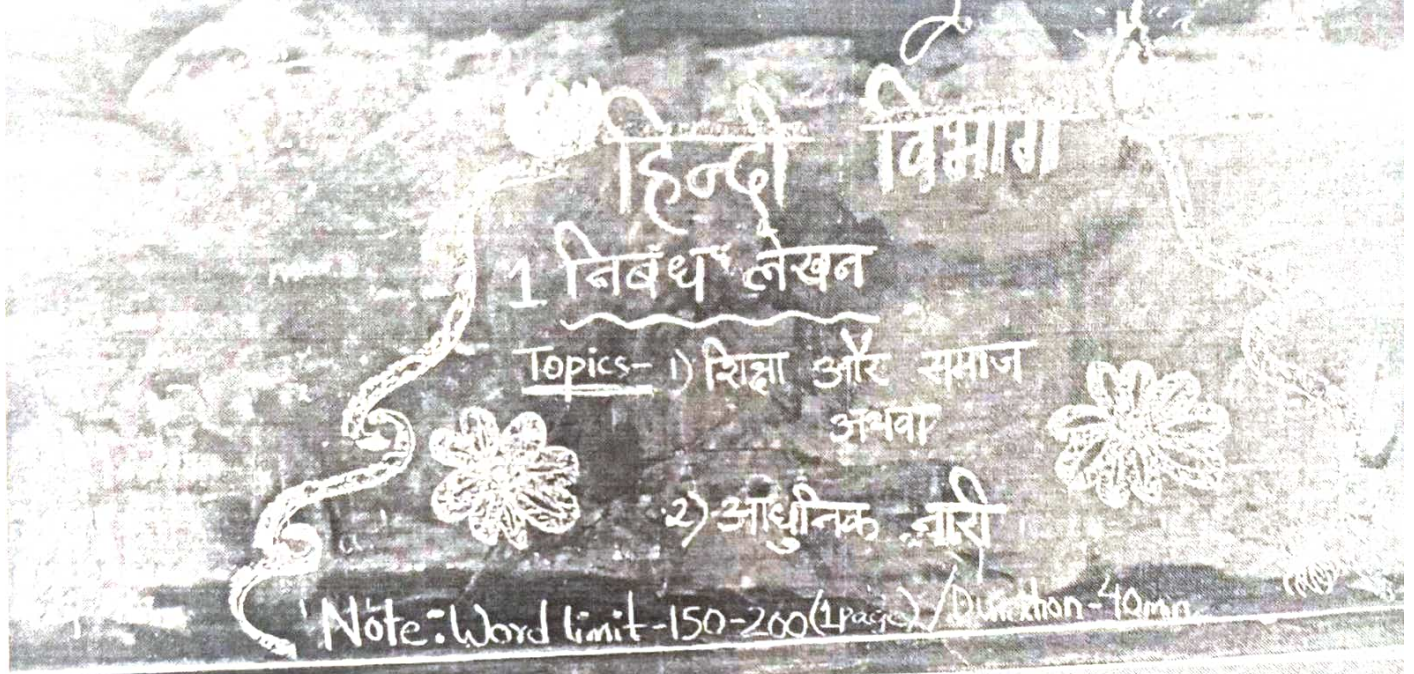 हिन्दी विभाग
1 निबंध लेखन
Topics- 1) शिक्षा और समाज
अथवा
2) आधुनिक नारी
Note: Word limit-150-200(1page)/Duration-40min